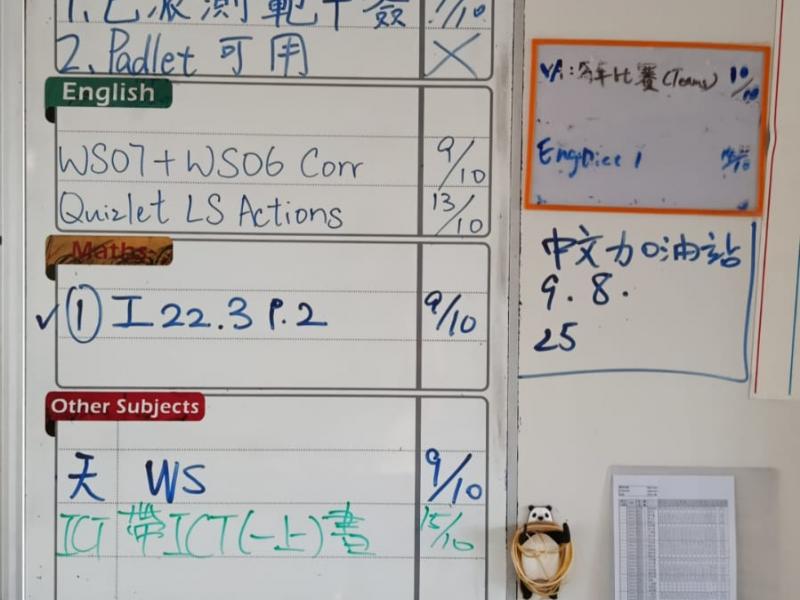 2. Padlet 可用 X
English
WS07 + WS06 Corr 9/10
Quizlet LS Actions 13/10
Maths
✓ ① 工 22.3 P.2 9/10
Other Subjects
天 WS 9/10
ICT 帶ICT(一上)書 15/10
比賽 (Teams)
EngDice 1
中文加油站
9.8.
25